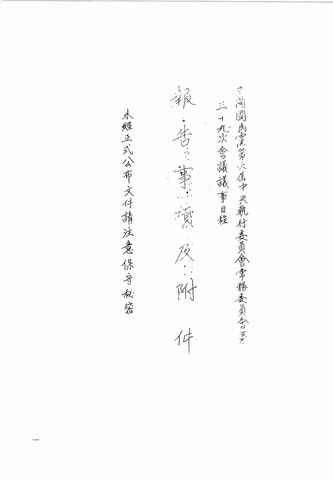 中國國民黨第六屆中央執行委員會常務委員會第
三十九次會議議事日程
報告事項及附件
未經正式公布文件請注意保守秘密